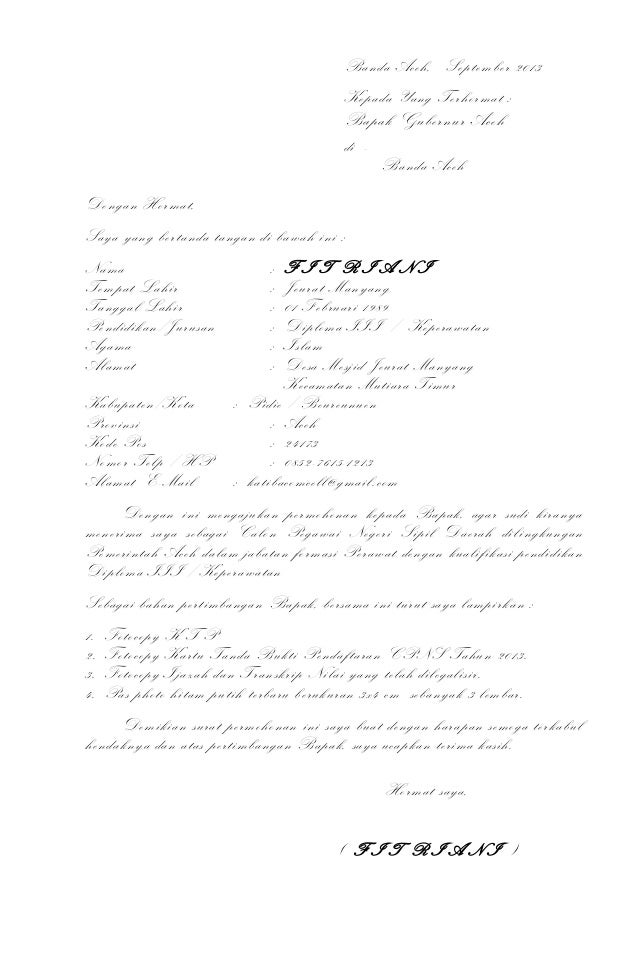 Banda Aceh, September 2013
Kepada Yang Terhormat :
Bapak Gubernur Aceh
di -
Banda Aceh
Dengan Hormat,
Saya yang bertanda tangan di bawah ini :
Nama : FITRIANI
Tempat Lahir : Jeurat Manyang
Tanggal Lahir : 01 Februari 1989
Pendidikan/Jurusan : Diploma III / Keperawatan
Agama : Islam
Alamat : Desa Mesjid Jeurat Manyang
Kecamatan Mutiara Timur
Kabupaten/Kota : Pidie / Beureunuen
Provinsi : Aceh
Kode Pos : 24173
Nomor Telp / HP : 0852 7615 1213
Alamat E-Mail : katibacomcell@gmail.com
Dengan ini mengajukan permohonan kepada Bapak, agar sudi kiranya
menerima saya sebagai Calon Pegawai Negeri Sipil Daerah dilingkungan
Pemerintah Aceh dalam jabatan formasi Perawat dengan kualifikasi pendidikan
Diploma III / Keperawatan
Sebagai bahan pertimbangan Bapak, bersama ini turut saya lampirkan :
1. Fotocopy KTP
2. Fotocopy Kartu Tanda Bukti Pendaftaran CPNS Tahun 2013.
3. Fotocopy Ijazah dan Transkrip Nilai yang telah dilegalisir.
4. Pas photo hitam putih terbaru berukuran 3x4 cm sebanyak 3 lembar.
Demikian surat permohonan ini saya buat dengan harapan semoga terkabul
hendaknya dan atas pertimbangan Bapak, saya ucapkan terima kasih.
Hormat saya,
( FITRIANI )